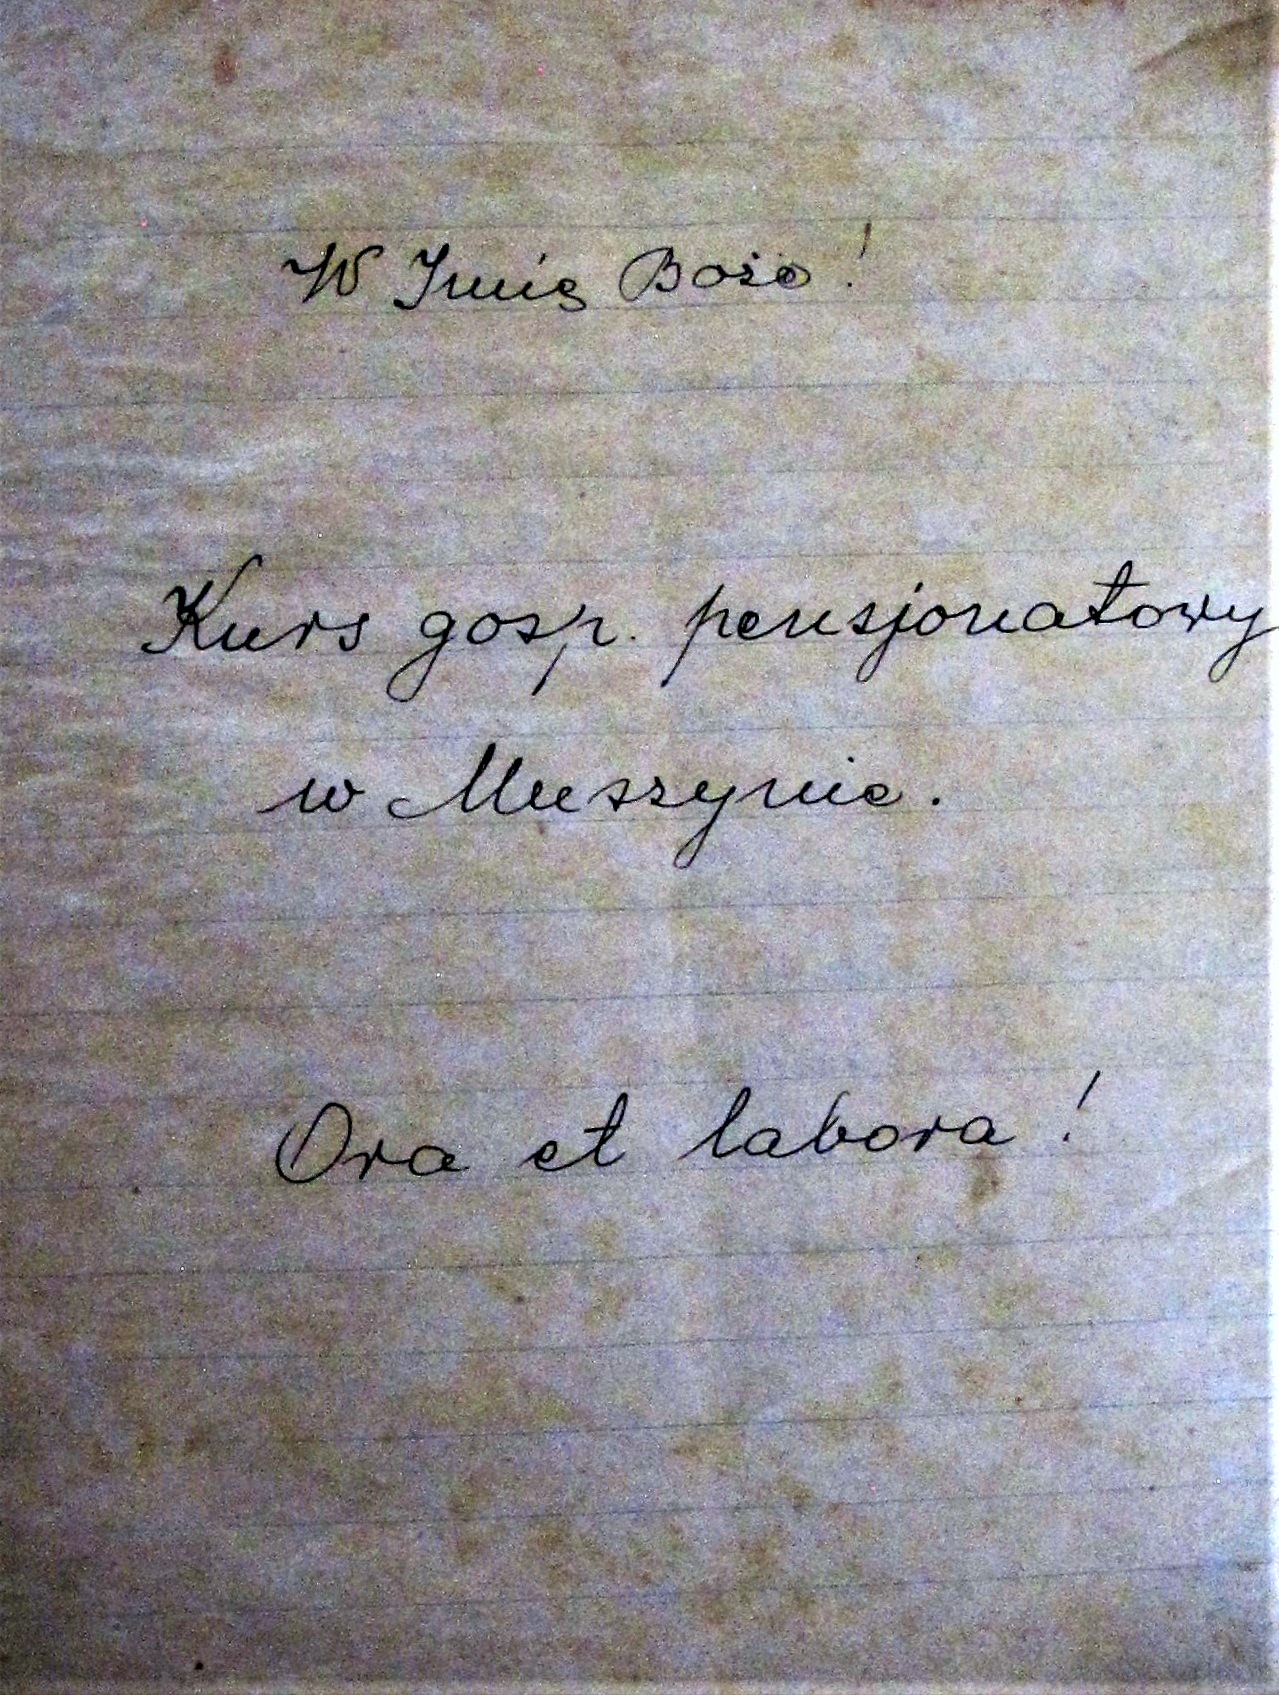 W Imię Boże!
Kurs gosp. pensjonatowy
w Muszynie.
Ora et labora!